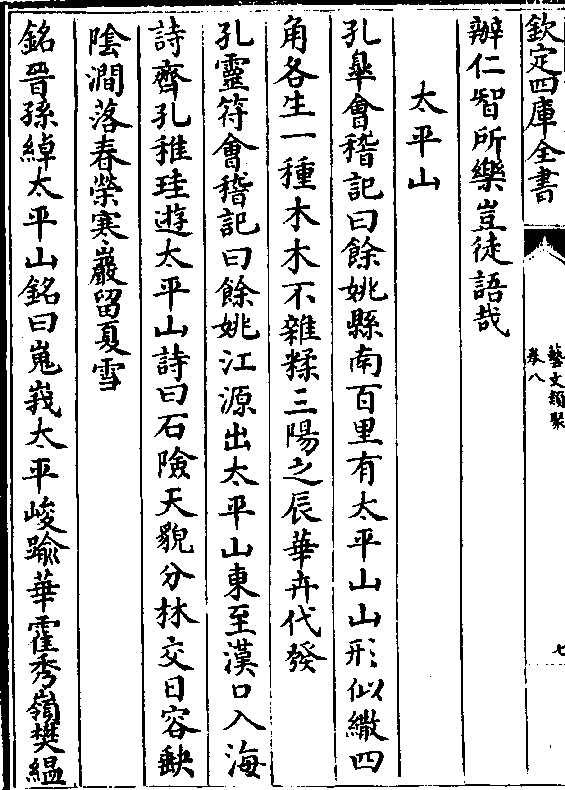 欽定四庫全書
藝文類聚
卷八
七
辦仁智所樂豈徒語哉
太平山
孔臯會稽記曰餘姚縣南百里有太平山山形似繖四
角各生一種木木不雜糅三陽之辰華卉代發
孔靈符會稽記曰餘姚江源出太平山東至漢口入海
詩齊孔稚珪遊太平山詩曰石險天貌分林交日容缺
陰澗落春榮寒巖留夏雪
銘晉孫綽太平山銘曰嵬峩太平峻踰華霍秀嶺樊緼